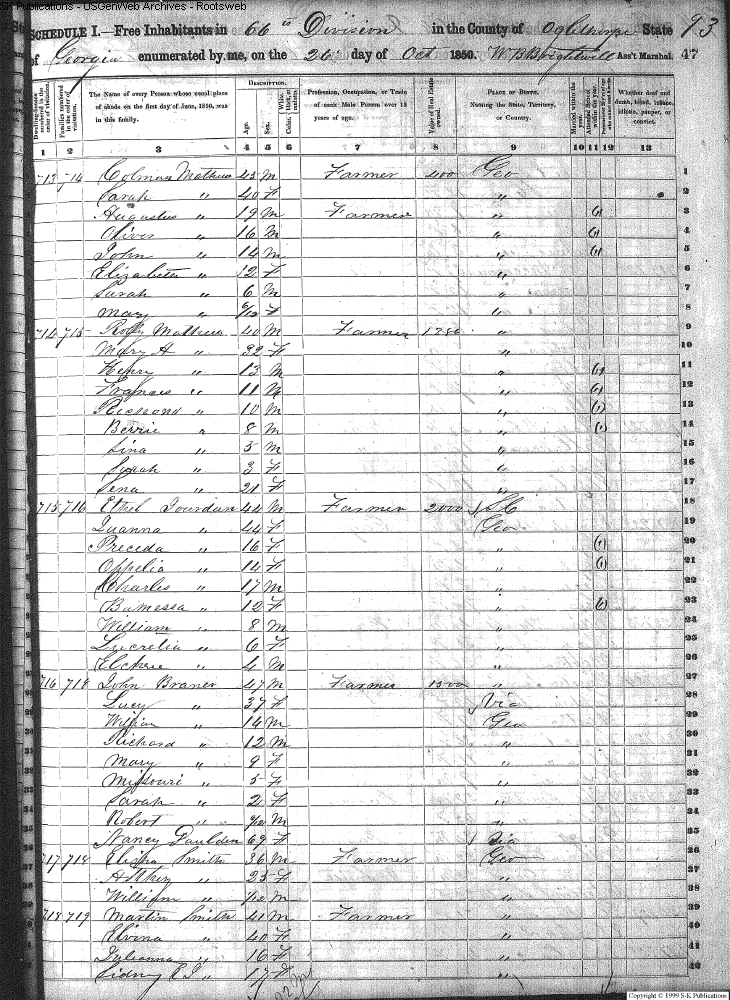 S-K Publications - USGenWeb Archives - Rootsweb
SCHEDULE I.—Free Inhabitants in 66th Division in the County of Oglethorpe State 93
of Georgia enumerated by me, on the 26 day of Oct 1850. W B Brightwell Ass't Marshal. 47
Dwelling-houses numbered in the order of visitation. Families numbered in the order of visitation. The Name of every Person whose usual place of abode on the first day of June, 1850, was in this family. DESCRIPTION. Age. Sex. Color, White, black, or mulatto. Profession, Occupation, or Trade of each Male Person over 15 years of age. Value of Real Estate owned. PLACE OF BIRTH. Naming the State, Territory, or Country. Married within the year. Attended School within the year. Whether deaf and dumb, blind, insane, idiotic, pauper, or convict.
1 2 3 4 5 6 7 8 9 10 11 12 13
713 714 Colman Mathews 45 M Farmer 400 Geo 1
Sarah " 40 F " 2
Augustus " 19 M Farmer " (1) 3
Oliver " 16 M " (1) 4
John " 14 M " (1) 5
Elizabeth " 12 F " 6
Sarah " 6 M " 7
Mary " 6/12 F " 8
714 715 Mathews 40 M Farmer " 9
Mary A " 32 F " 10
Henry " 13 M " (1) 11
Frances " 11 M " (1) 12
Richmond " 10 M " (1) 13
Berrie " 8 M " (1) 14
" 5 M " 15
Sarah " 3 F " 16
" 21 F " 17
715 716 Ethel Jourdan 44 M Farmer 2000 S C 18
Luanna " 44 F Geo 19
Preceda " 16 F " (1) 20
Oppelia " 14 F " (1) 21
Charles " 17 M " 22
" 12 F " (1) 23
William " 8 M " 24
Lucretia " 6 F " 25
" 4 M " 26
716 718 John Braner 47 M Farmer 1500 " 27
Lucy " 37 F Via 28
William " 14 M Geo 29
Richard " 12 M " 30
Mary " 9 F " 31
Missouri " 5 F " 32
Sarah " 2 F " 33
Robert " M " 34
Nancy Paulden 69 F Via 35
717 718 Elisha Smith 36 M Farmer Geo 36
" 25 F "
William " M "
718 719 Martin Smith 41 M Farmer " 39
Elvina " 40 F " 40
Julianna " 16 F " 41
Sidney E J " 17 F "
Copyright © 1999 S-K Publications